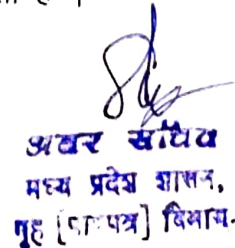 अवर सचिव
मध्य प्रदेश शासन,
गृह [पारपत्र] विभाग.